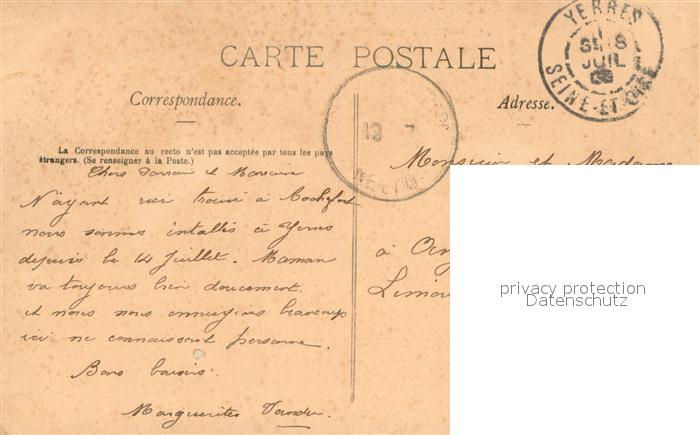 CARTE POSTALE
YERRES
S 18
JUIL
SEINE-ET-OISE
Correspondance.
Adresse.
18 7
La Correspondance au recto n'est pas acceptée par tous les pays
étrangers. (Se renseigner à la Poste.)
Monsieur et Madame
Chers Parrain et Marraine
N'ayant rien trouvé à Rochefort
nous sommes intallés à Yerres
depuis le 14 Juillet. Maman
va toujours bien doucement.
et nous nous ennuyons beaucoup
ici ne connaissant personne.
Bons baisers.
Marguerites
à
privacy protection
Datenschutz